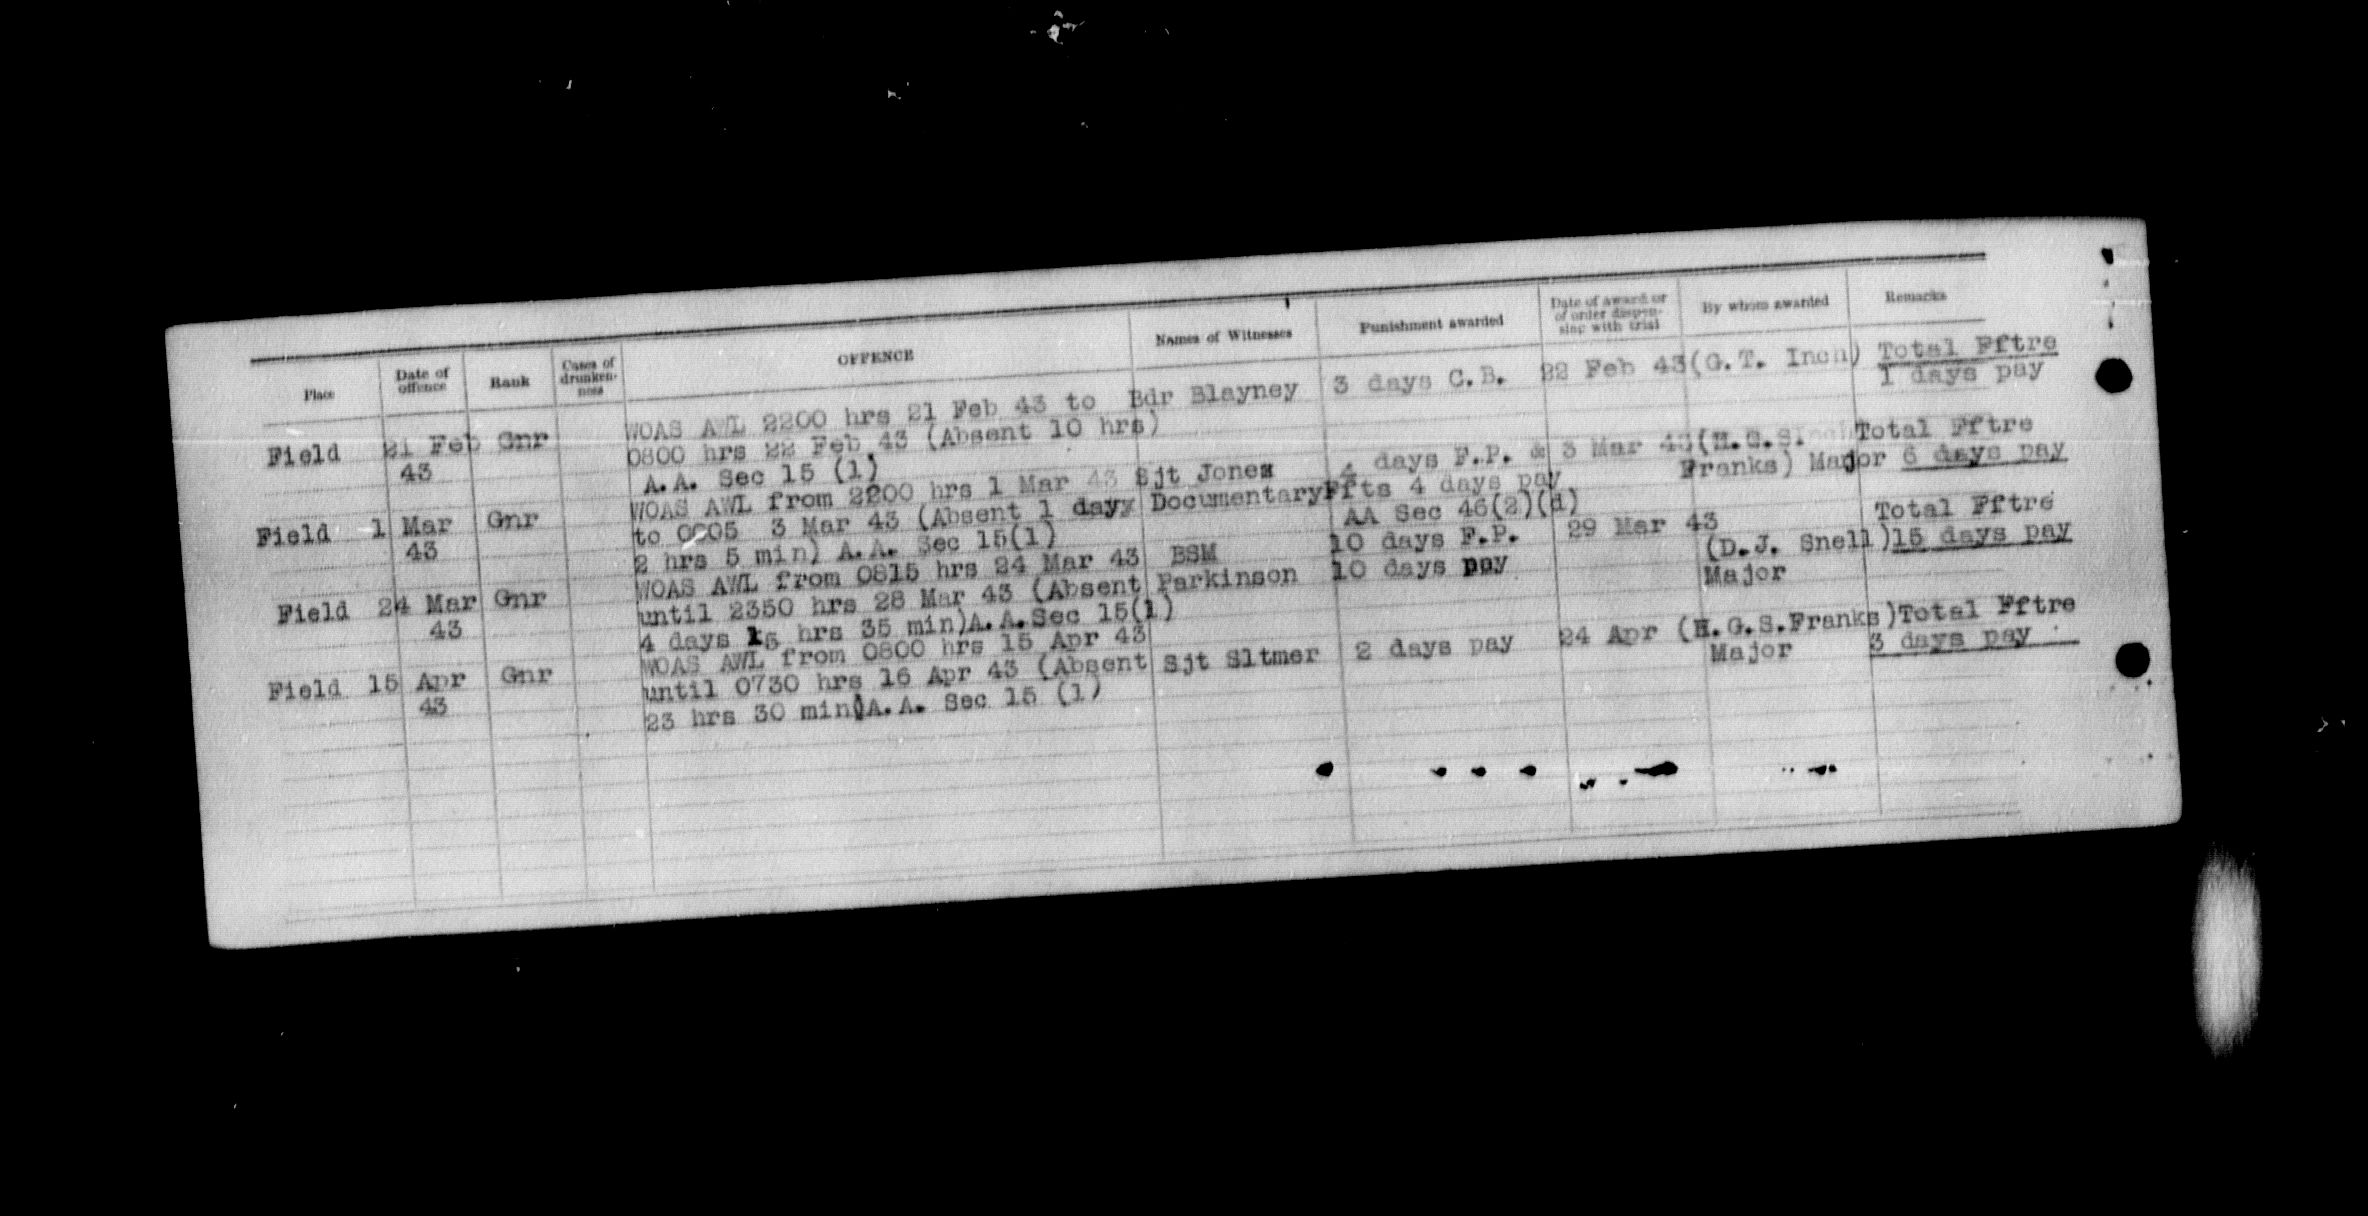 Place Date of offence Rank Cases of drunken-ness OFFENCE Names of Witnesses Punishment awarded Date of award or of order dispen-sing with trial By whom awarded Remarks
Field 21 Feb 43 Gnr
WOAS AWL 2200 hrs 21 Feb 43 to
0800 hrs 22 Feb 43 (Absent 10 hrs)
A.A. Sec 15 (1)
Bdr Blayney
3 days C.B.
22 Feb 43
(G.T. Inch)
Total Fftre
1 days pay
Field 1 Mar 43 Gnr
WOAS AWL from 2200 hrs 1 Mar 43
to 0005 3 Mar 43 (Absent 1 day
2 hrs 5 min) A.A. Sec 15(1)
Sjt Jones
Documentary
4 days F.P. &
Ffts 4 days pay
AA Sec 46(2)(d)
3 Mar 43
(H.G.S.
Franks) Major
Total Fftre
6 days pay
Field 24 Mar 43 Gnr
WOAS AWL from 0815 hrs 24 Mar 43
until 2350 hrs 28 Mar 43 (Absent
4 days 15 hrs 35 min)A.A.Sec 15(1)
BSM
Parkinson
10 days F.P.
10 days pay
29 Mar 43
(D.J. Snell)
Major
Total Fftre
15 days pay
Field 15 Apr 43 Gnr
WOAS AWL from 0800 hrs 15 Apr 43
until 0730 hrs 16 Apr 43 (Absent
23 hrs 30 min)A.A. Sec 15 (1)
Sjt Sltmer
2 days pay
24 Apr
(H.G.S.Franks)
Major
Total Fftre
3 days pay